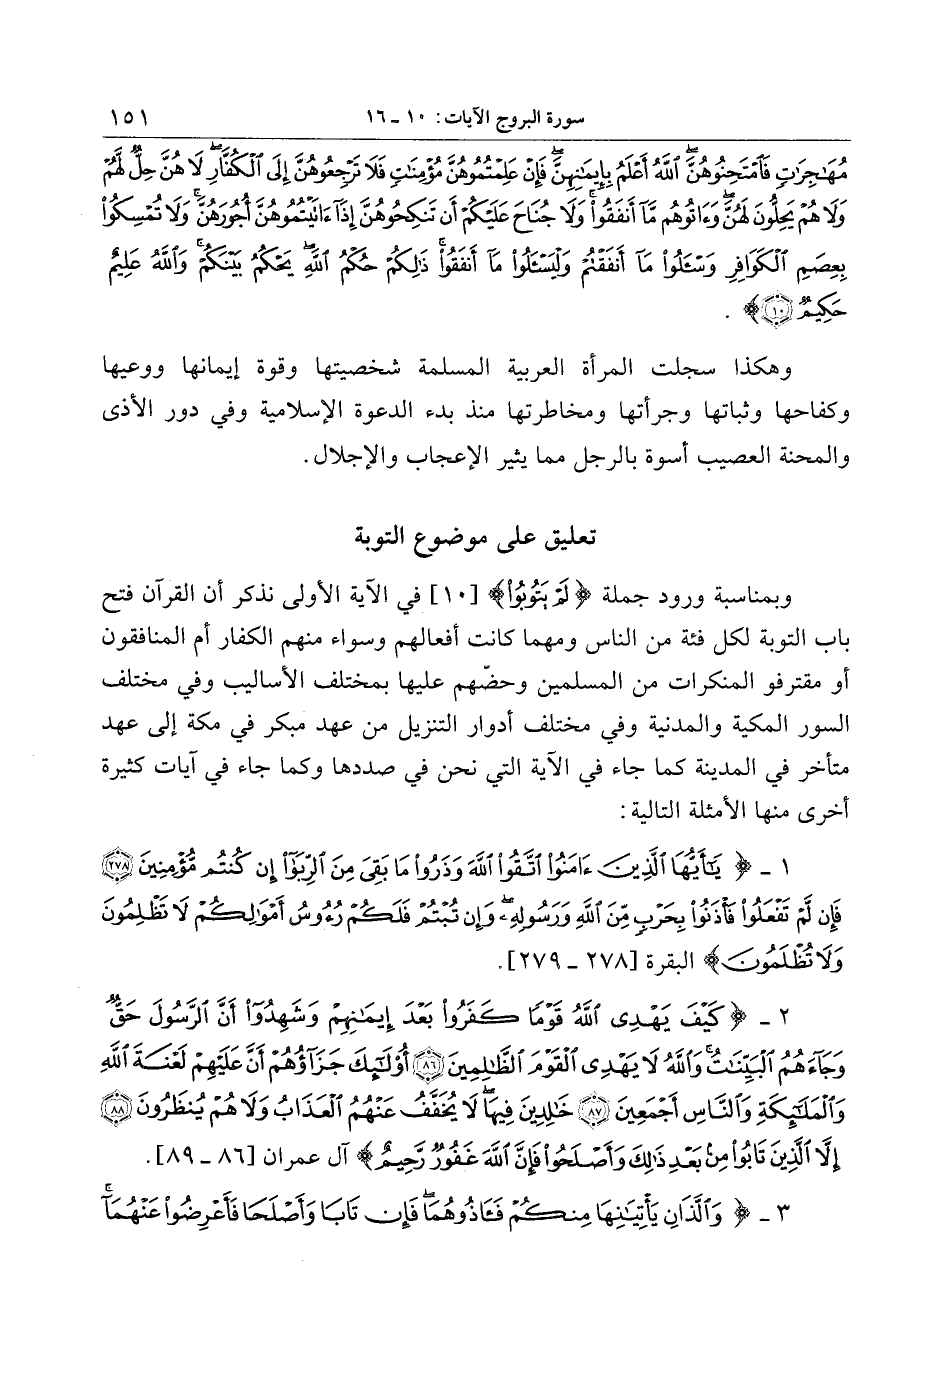 سورة البروج الآيات: ١٠ ـ ١٦ ١٥١
مُهَٰجِرَٰتٖ فَٱمۡتَحِنُوهُنَّۖ ٱللَّهُ أَعۡلَمُ بِإِيمَٰنِهِنَّۖ فَإِنۡ عَلِمۡتُمُوهُنَّ مُؤۡمِنَٰتٖ فَلَا تَرۡجِعُوهُنَّ إِلَى ٱلۡكُفَّارِۖ لَا هُنَّ حِلّٞ لَّهُمۡ
وَلَا هُمۡ يَحِلُّونَ لَهُنَّۖ وَءَاتُوهُم مَّآ أَنفَقُواْۚ وَلَا جُنَاحَ عَلَيۡكُمۡ أَن تَنكِحُوهُنَّ إِذَآ ءَاتَيۡتُمُوهُنَّ أُجُورَهُنَّۚ وَلَا تُمۡسِكُواْ
بِعِصَمِ ٱلۡكَوَافِرِ وَسۡـَٔلُواْ مَآ أَنفَقۡتُمۡ وَلۡيَسۡـَٔلُواْ مَآ أَنفَقُواْۚ ذَٰلِكُمۡ حُكۡمُ ٱللَّهِۖ يَحۡكُمُ بَيۡنَكُمۡۚ وَٱللَّهُ عَلِيمٌ
حَكِيمٞ ١٠﴾ .
وهكذا سجلت المرأة العربية المسلمة شخصيتها وقوة إيمانها ووعيها
وكفاحها وثباتها وجرأتها ومخاطرتها منذ بدء الدعوة الإسلامية وفي دور الأذى
والمحنة العصيب أسوة بالرجل مما يثير الإعجاب والإجلال.
تعليق على موضوع التوبة
وبمناسبة ورود جملة ﴿لَمۡ يَتُوبُواْ﴾ [١٠] في الآية الأولى نذكر أن القرآن فتح
باب التوبة لكل فئة من الناس ومهما كانت أفعالهم وسواء منهم الكفار أم المنافقون
أو مقترفو المنكرات من المسلمين وحضّهم عليها بمختلف الأساليب وفي مختلف
السور المكية والمدنية وفي مختلف أدوار التنزيل من عهد مبكر في مكة إلى عهد
متأخر في المدينة كما جاء في الآية التي نحن في صددها وكما جاء في آيات كثيرة
أخرى منها الأمثلة التالية:
١ ـ ﴿ يَٰٓأَيُّهَا ٱلَّذِينَ ءَامَنُواْ ٱتَّقُواْ ٱللَّهَ وَذَرُواْ مَا بَقِيَ مِنَ ٱلرِّبَوٰٓاْ إِن كُنتُم مُّؤۡمِنِينَ ٢٧٨
فَإِن لَّمۡ تَفۡعَلُواْ فَأۡذَنُواْ بِحَرۡبٖ مِّنَ ٱللَّهِ وَرَسُولِهِۦۖ وَإِن تُبۡتُمۡ فَلَكُمۡ رُءُوسُ أَمۡوَٰلِكُمۡ لَا تَظۡلِمُونَ
وَلَا تُظۡلَمُونَ﴾ البقرة [٢٧٨ ـ ٢٧٩].
٢ ـ ﴿ كَيۡفَ يَهۡدِي ٱللَّهُ قَوۡمٗا كَفَرُواْ بَعۡدَ إِيمَٰنِهِمۡ وَشَهِدُوٓاْ أَنَّ ٱلرَّسُولَ حَقّٞ
وَجَآءَهُمُ ٱلۡبَيِّنَٰتُۚ وَٱللَّهُ لَا يَهۡدِي ٱلۡقَوۡمَ ٱلظَّٰلِمِينَ ٨٦ أُوْلَٰٓئِكَ جَزَآؤُهُمۡ أَنَّ عَلَيۡهِمۡ لَعۡنَةَ ٱللَّهِ
وَٱلۡمَلَٰٓئِكَةِ وَٱلنَّاسِ أَجۡمَعِينَ ٨٧ خَٰلِدِينَ فِيهَا لَا يُخَفَّفُ عَنۡهُمُ ٱلۡعَذَابُ وَلَا هُمۡ يُنظَرُونَ ٨٨
إِلَّا ٱلَّذِينَ تَابُواْ مِنۢ بَعۡدِ ذَٰلِكَ وَأَصۡلَحُواْ فَإِنَّ ٱللَّهَ غَفُورٞ رَّحِيمٌ﴾ آل عمران [٨٦ ـ ٨٩].
٣ ـ ﴿ وَٱلَّذَانِ يَأۡتِيَٰنِهَا مِنكُمۡ فَـَٔاذُوهُمَاۖ فَإِن تَابَا وَأَصۡلَحَا فَأَعۡرِضُواْ عَنۡهُمَآۚ